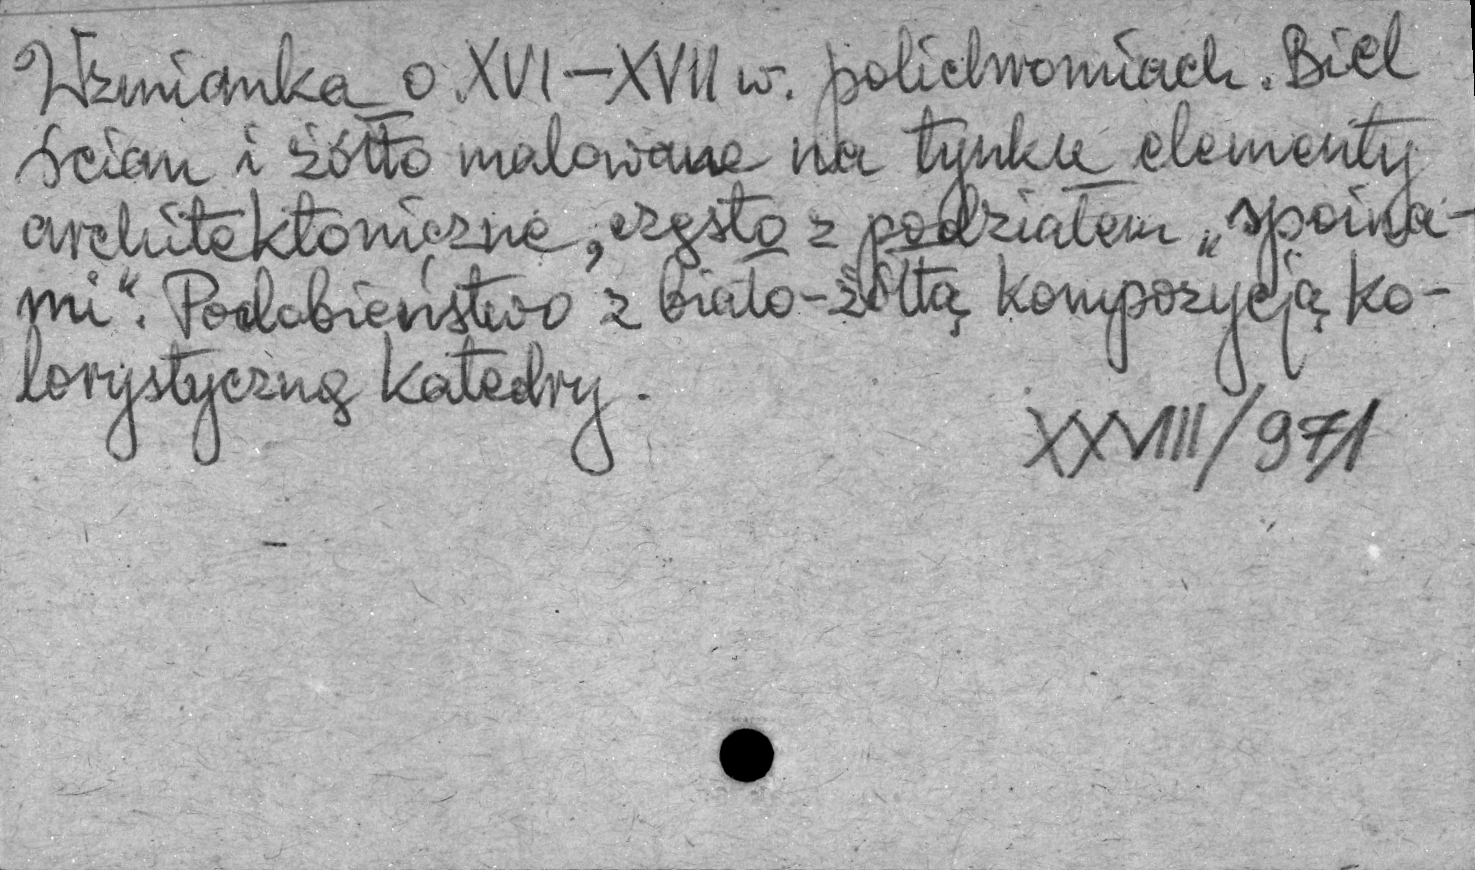 Wzmianka o XVI-XVII w. polichromiach. Biel
ścian i żółto malowane na tynku elementy
architektoniczne, często z podziałem „spoina-
mi". Podobieństwo z biało-żółtą kompozycją ko-
lorystyczną katedry.
XXVIII/971